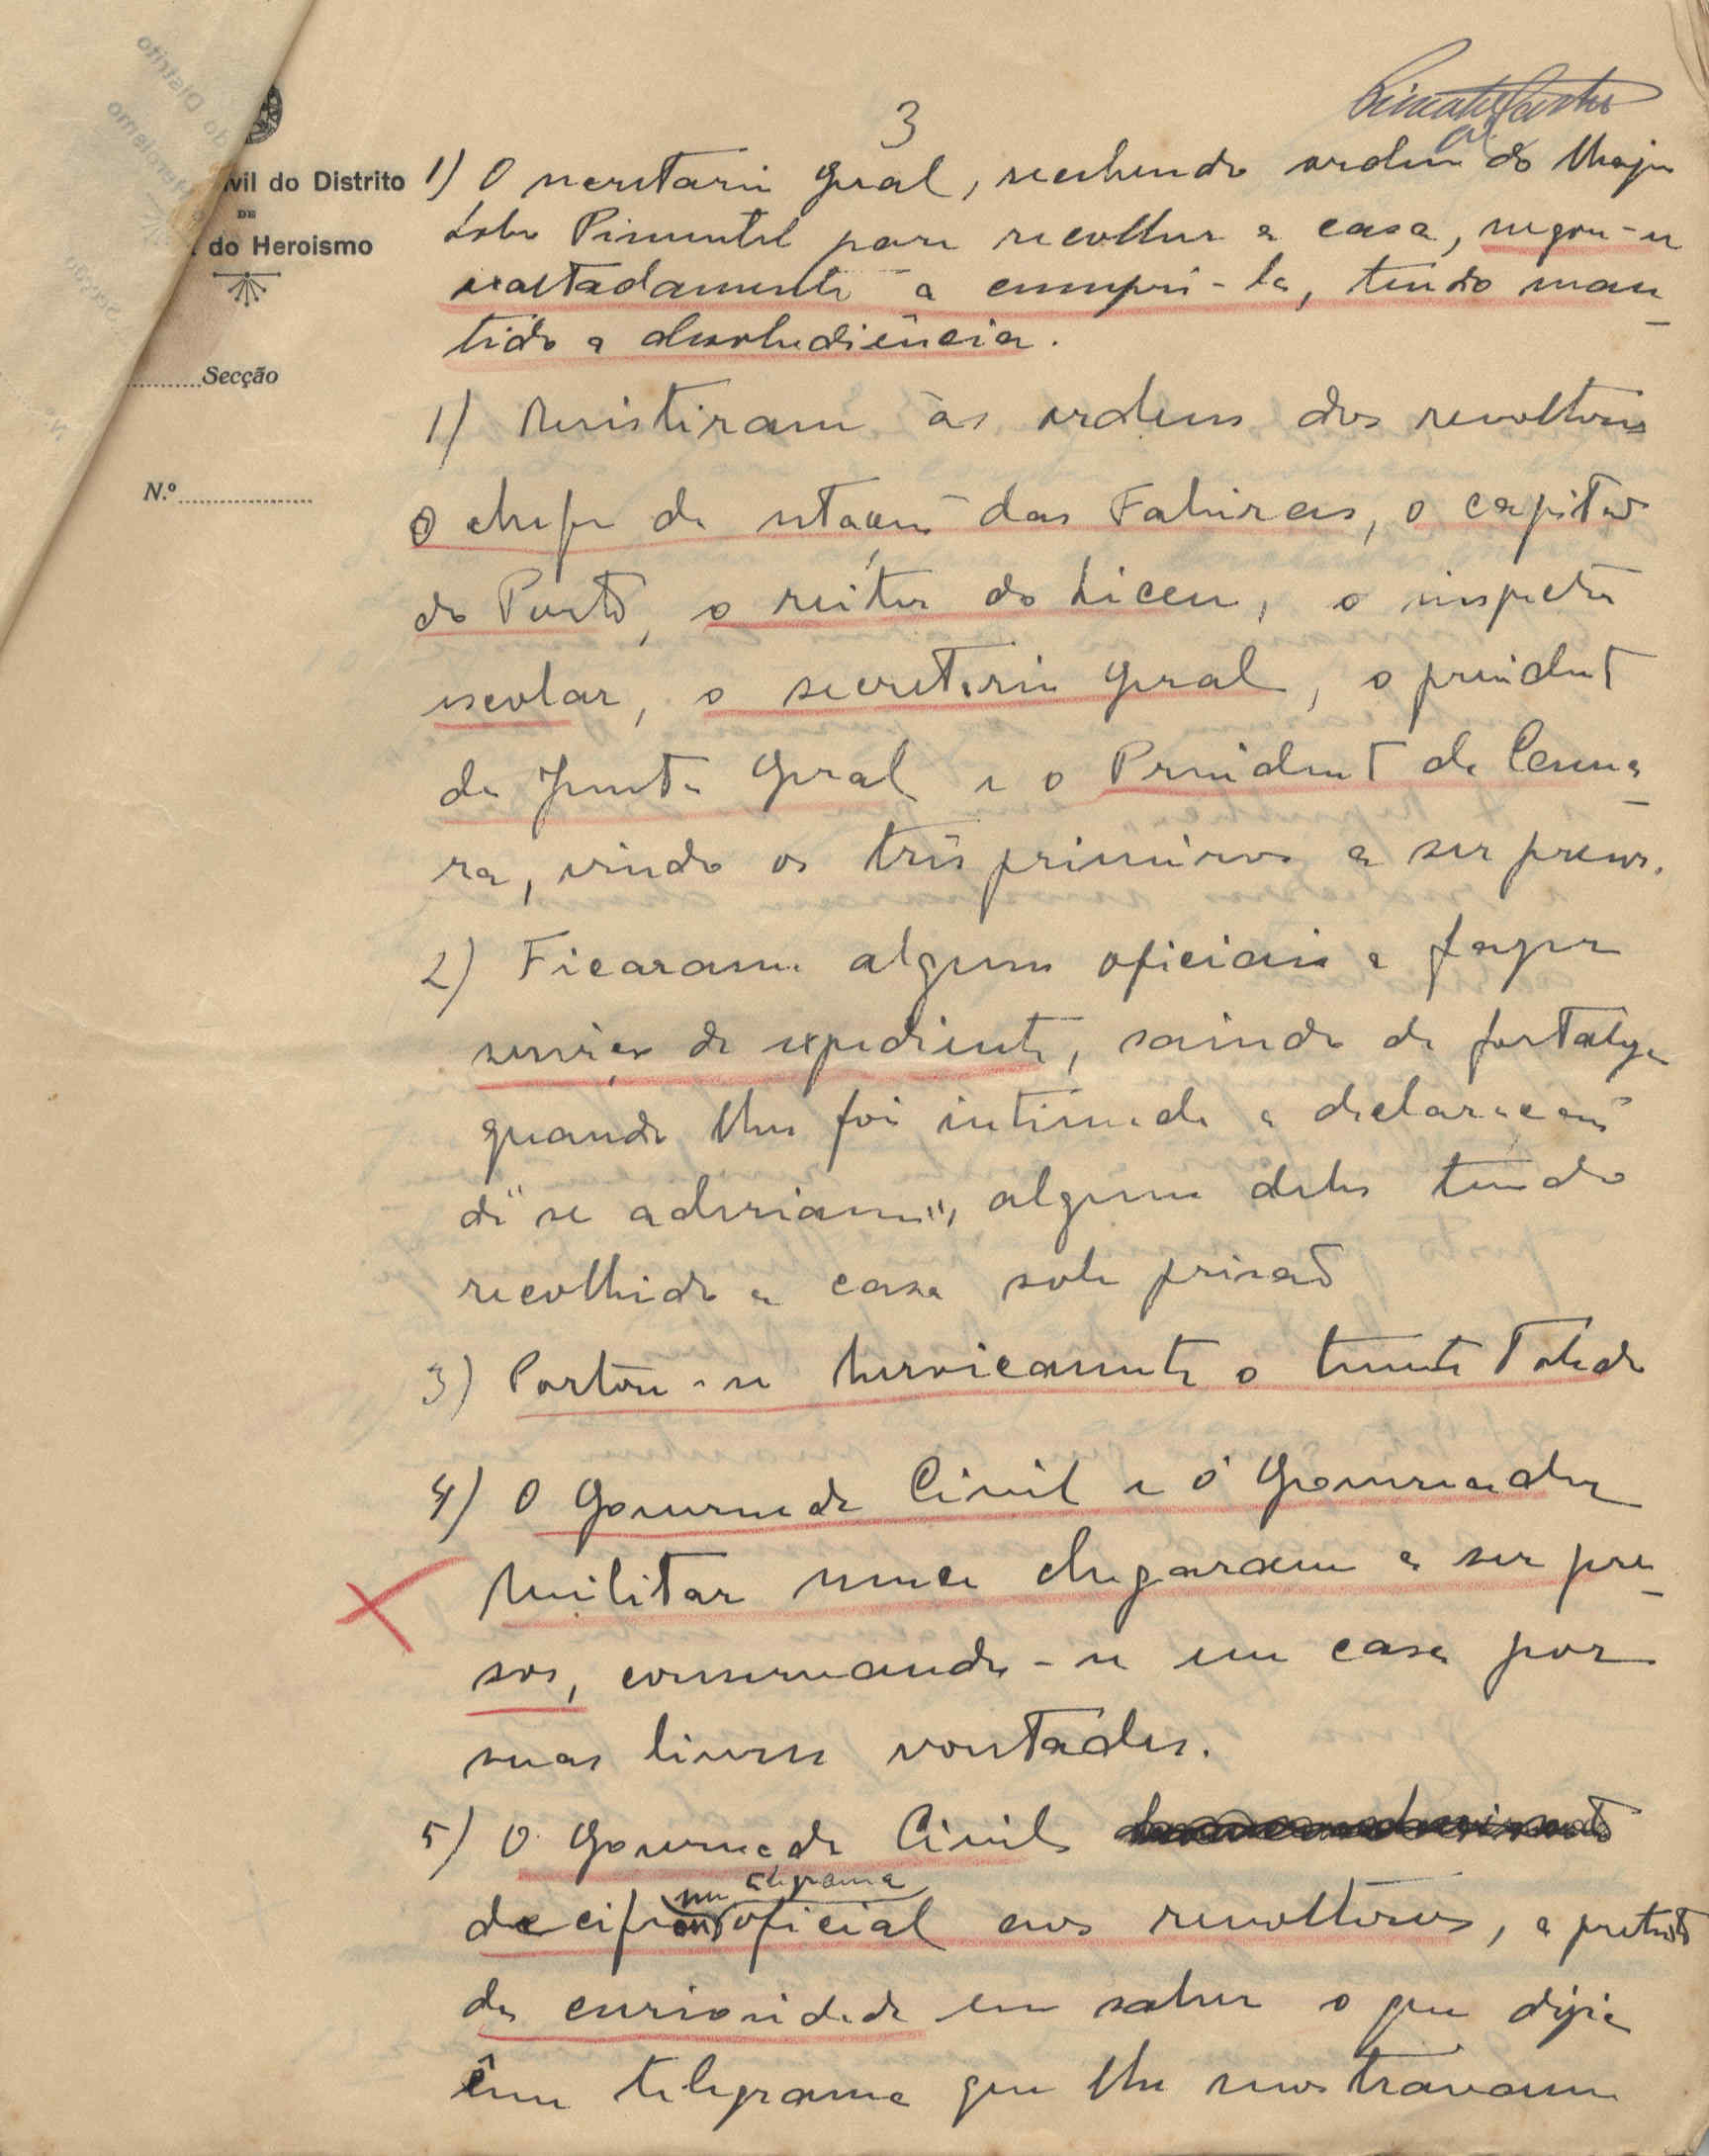 3
vil do Distrito
DE
do Heroismo
Secção
N.º
1) O secretario geral, recebendo ordem do Major
Lobo Pimentel para recolher a casa, negou-se
exaltadamente a cumpri-la, tendo man_
tido a desobediência.
1) Resistiram às ordens dos revoltosos
o chefe da estação das Falireas, o capitão
do Porto, o reitor do Liceu, o inspector
escolar, o secretario geral, o president
da Junta Geral e o President da Cama_
ra, vindo os três primeiros a ser presos.
2) Ficaram alguns oficiais a fazer
serviço de expediente, saindo da fortaleza
quando lhes foi intimada a declaração
de "se aderiam", alguns deles tendo
recolhido a casa sob prisão
3) Portou-se heroicamente o tenente Toledo
4) O Governador Civil e o Governador
Militar nunca chegaram a ser pre_
sos, conservando-se em casa por
suas livres vontades.
5) O Governador Civil
telegrama
um
decifrou oficial aos revoltosos, a pretexto
da curiosidade em saber o que dizia
êsse telegrama que lhe mostravam